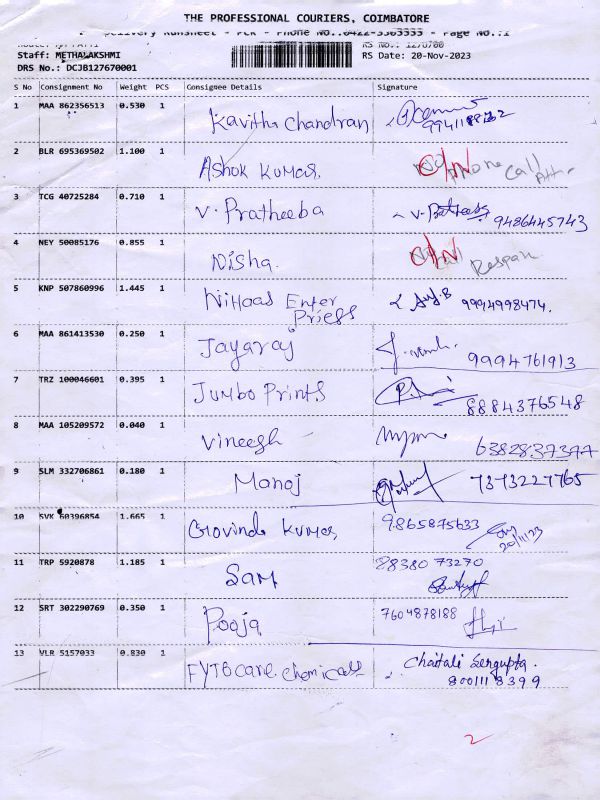 THE PROFESSIONAL COURIERS, COIMBATORE
Delivery Runsheet - PCR - Phone No.:0422-3303333 - Page No.:1
Staff: METHALAKSHMI RS Date: 20-Nov-2023
DRS No.: DCJB127670001
S No Consignment No Weight PCS Consignee Details Signature
1 MAA 862356513 0.530 1 Kavitha Chandran
2 BLR 695369502 1.100 1 Ashok Kumar, Phone Call
3 TCG 40725284 0.710 1 V. Pratheeba 9486445743
4 NEY 50085176 0.855 1 Nisha
5 KNP 507860996 1.445 1 Nihaas Enter Priess 9994998474.
6 MAA 861413530 0.250 1 Jayaraj 9994761913
7 TRZ 100046601 0.395 1 Jumbo Prints 8884376548
8 MAA 105209572 0.040 1 Vineesh
9 SLM 332706861 0.180 1 Manoj 7373227765
10 SVK 60396854 1.665 1 Govinda Kumar, 9865875633
20/11/23
11 TRP 5920878 1.185 1 Sam 88380 73270
12 SRT 302290769 0.350 1 Pooja 7604878188
13 VLR 5157033 0.830 1 FYTOcare Chemicals Chaitali Sengupta.
8001118399
2